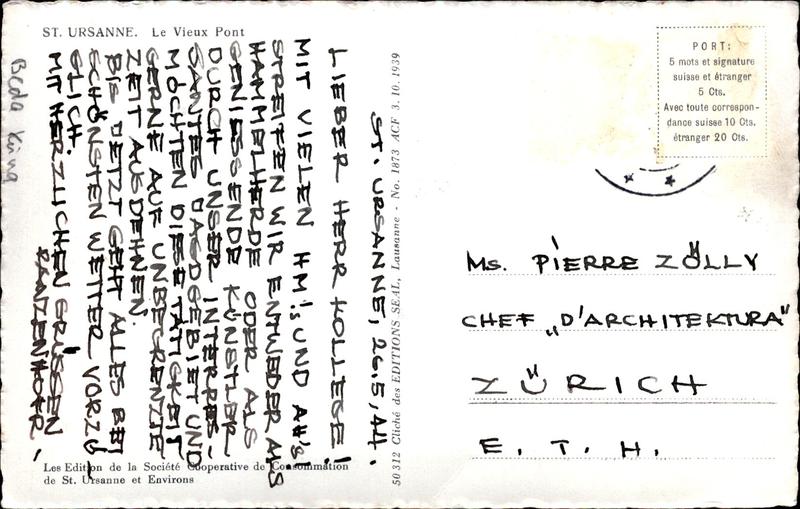 ST. URSANNE. Le Vieux Pont
ST. URSANNE, 26.5.44.
LIEBER HERR KOLLEGE!
MIT VIELEN HM!s UND AH's!
STREIFEN WIR ENTWEDER ALS
HAMMELHERDE ODER ALS
GENIESSENDE KÜNSTLER
DURCH UNSER INTERRES-
SANTES JAGDGEBIET UND
MÖCHTEN DIESE TÄTIGKEIT
GERNE AUF UNBEGRENZTE
ZEIT AUSDEHNEN.
BIS JETZT GEHT ALLES BEI
SCHÖNSTEN WETTER VORZÜ
GLICH.
MIT HERZLICHEN GRÜSSEN!
Les Edition de la Société Cooperative de Consommation
de St. Ursanne et Environs
50312 Cliché des EDITIONS SEAL, Lausanne - No. 1873 ACF 3.10.1939
PORT:
5 mots et signature
suisse et étranger
5 Cts.
Avec toute correspon-
dance suisse 10 Cts.
étranger 20 Cts.
Ms. PIERRE ZÖLLY
CHEF „D'ARCHITEKTURA"
ZÜRICH
E. T. H.